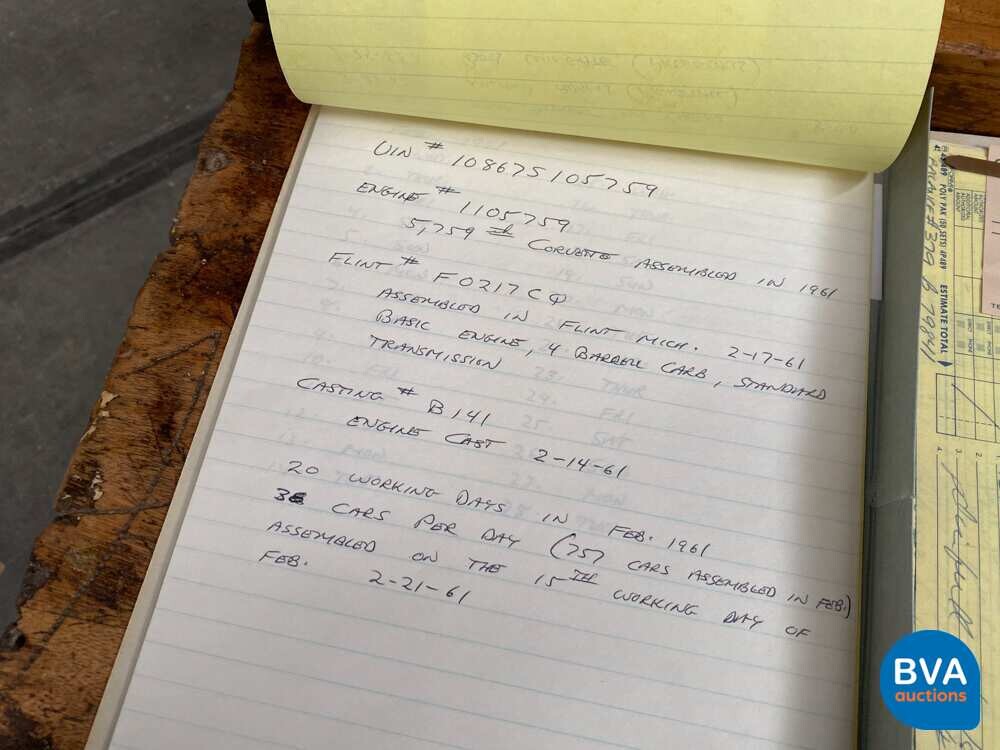 VIN # 10867S105759
ENGINE # 1105759
5,759 th CORVETTE ASSEMBLED IN 1961
FLINT # F0217CQ
ASSEMBLED IN FLINT MICH. 2-17-61
BASIC ENGINE, 4 BARREL CARB, STANDARD
TRANSMISSION
CASTING # B141
ENGINE CAST 2-14-61
20 WORKING DAYS IN FEB. 1961
CARS PER DAY (757 CARS ASSEMBLED IN FEB.)
ASSEMBLED ON THE 15TH WORKING DAY OF
FEB. 2-21-61
POLY PAK (50 SETS) 4P489
ESTIMATE TOTAL
BVA
auctions